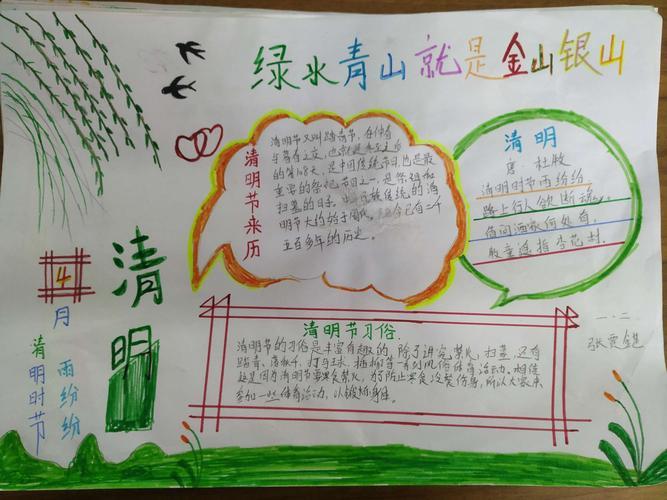 绿水青山就是金山银山
清明节来历
清明节又叫踏青节，在仲春
与暮春之交，也就是冬至后
的第108天，是中国传统节日，也是最
重要的祭祀节日之一，是祭祖和
扫墓的日子。中华民族传统的清
明节大约始于周代，距今已有二千
五百多年的历史。
清明
唐·杜牧
清明时节雨纷纷，
路上行人欲断魂。
借问酒家何处有，
牧童遥指杏花村。
一·二
清明节习俗
清明节的习俗是丰富有趣的，除了讲究禁火、扫墓，还有
踏青、荡秋千、打马球、插柳等一系列风俗体育活动。相传
这是因为清明节要寒食禁火，为了防止寒食冷餐伤身，所以大家来
参加一些体育活动，以锻炼身体。
清明
4月
雨纷纷
清明时节